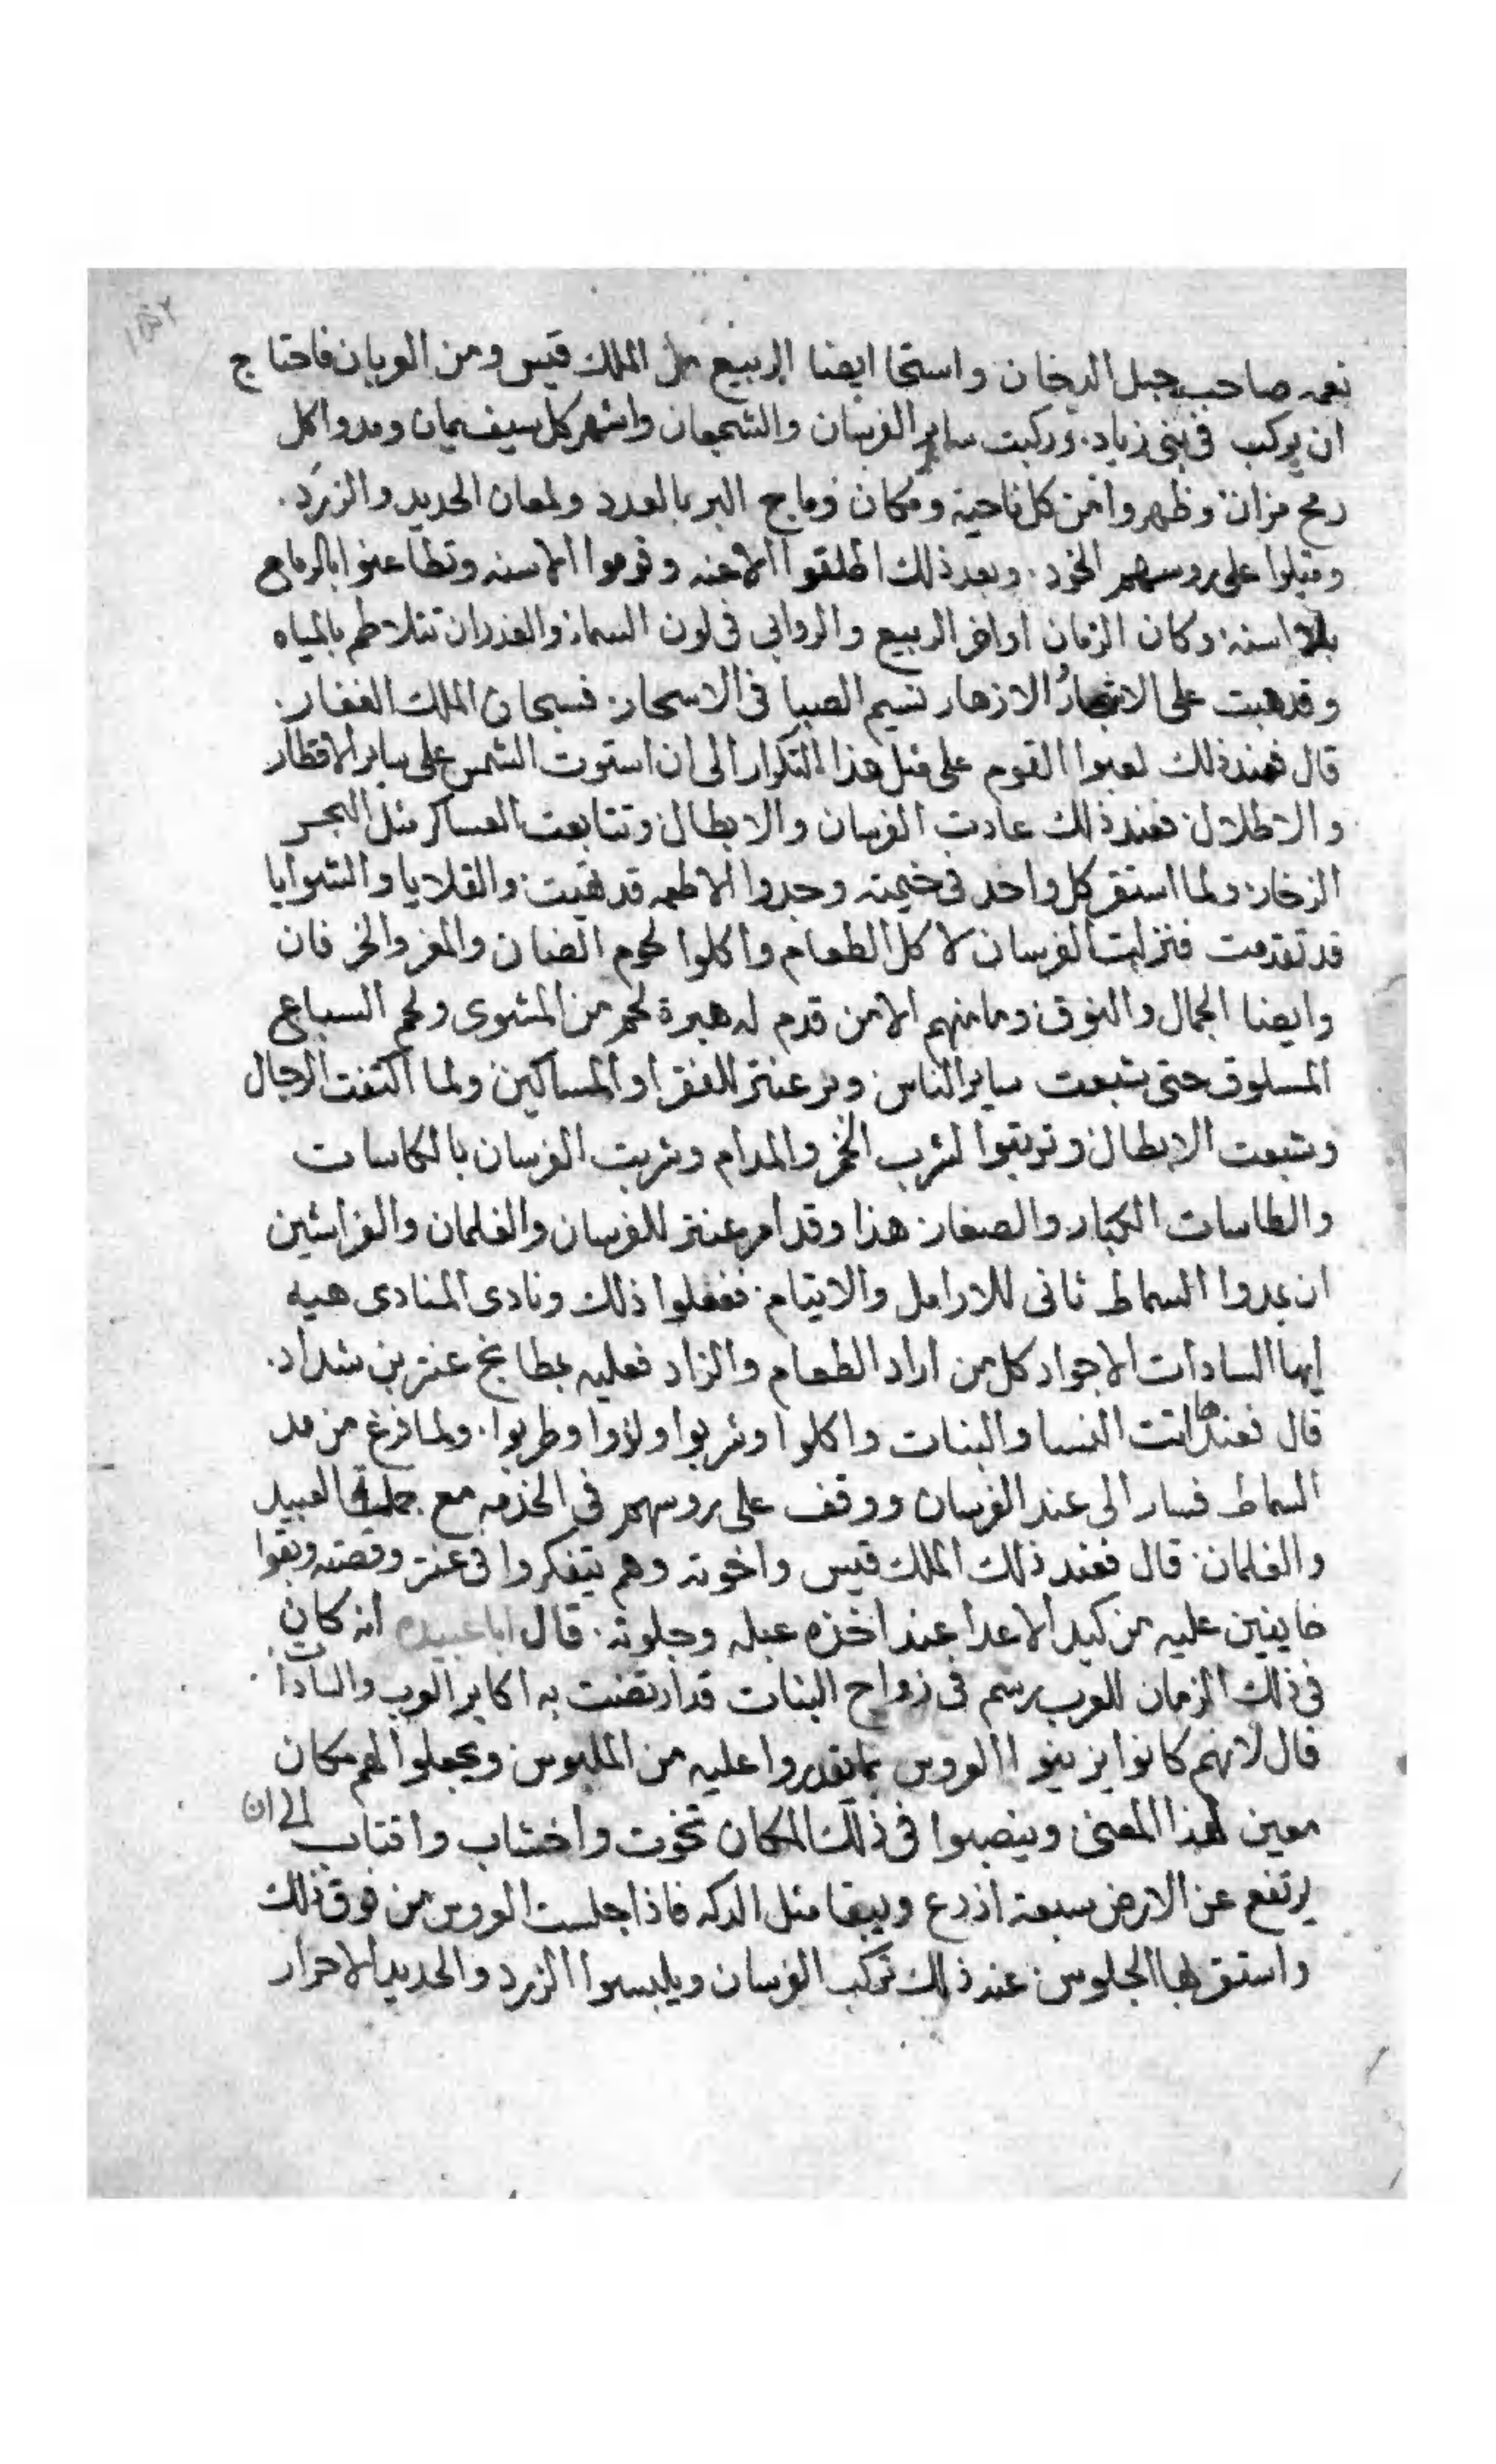 نعمه صاحب جبل الدخان واستحا ايضا الربيع من الملك قيس ومن العربان فاحتاج
ان يركب فى بنى زياد. وركبت ساير الفرسان والشجعان واشهر كل سيف يمان ومدوا كل
رمح مزان وظهروا من كل ناحية ومكان وماج البر بالعدد ولمعان الحديد والزرد.
على روسهم الخود. وبعد ذلك اطلقوا الاعنه وقوموا الاسنه وتطاعنوا بالرماح
بلا اسنه وكان الزمان اواخر الربيع والروابى فى لون السما والغدران تتلاطم بالمياه
وقد هبت على الاشجار الازهار نسيم الصبا فى الاسحار. فسبحان الملك الغفار.
قال فعند ذلك لعبوا القوم على مثل هذا التكرار الى ان استوت الشمس على ساير الاقطار
والاطلال فعند ذلك عادت الفرسان والابطال وتتابعت العساكر مثل البحر
الزخار ولما استقر كل واحد فى خيمته وجدوا الاطعمه قد هيت والقلايا والشوايا
قد تقدمت فنزلت الفرسان لاكل الطعام واكلوا لحوم الضان والمعز والخرفان
وايضا الجمال والنوق وما منهم الا من قدم له هبرة لحم من المشوى ولحم السباع
المسلوق حتى شبعت ساير الناس وبر عنتر للفقرا والمساكين ولما اكتفت الرجال
وشبعت الابطال وترتبوا لشرب الخمر والمدام وشربت الفرسان بالكاسات
والطاسات الكبار والصغار هذا وقد امر عنتر للفرسان والغلمان والفراشين
ان يمدوا السماط ثانى للارامل والايتام. ففعلوا ذلك ونادى المنادى هيه
ايها السادات الاجواد كل من اراد الطعام والزاد فعليه بمطابخ عنتر بن شداد.
قال فعندها اتت النسا والبنات واكلوا وشربوا ولذوا وطربوا. ولما فرغ من مد
السماط فسار الى عند الفرسان ووقف على روسهم فى الخدمه مع جملة العبيد
والغلمان. قال فعند ذلك الملك قيس واخوته وهم يتفكروا فى عنتر وقصته وبقوا
خايفين عليه من كيد الاعدا عند اخذه عبله وجلوته. قال ابا عبيده انه كان
فى ذلك الزمان للعرب رسم فى زواج البنات قد ارتضت به اكابر العرب والسادات.
قال لانهم كانوا يزينوا العروس بما يقدروا عليه من الملبوس ويجعلوا لهم مكان
معين لهذا المعنى وينصبوا فى ذلك المكان تخوت واخشاب واقتاب الى ان
يرتفع عن الارض سبعة اذرع ويبقا مثل الدكه فاذا جلست العروس من فوق ذلك
واستقر بها الجلوس عند ذلك تركب الفرسان ويلبسوا الزرد والحديد الاحرار